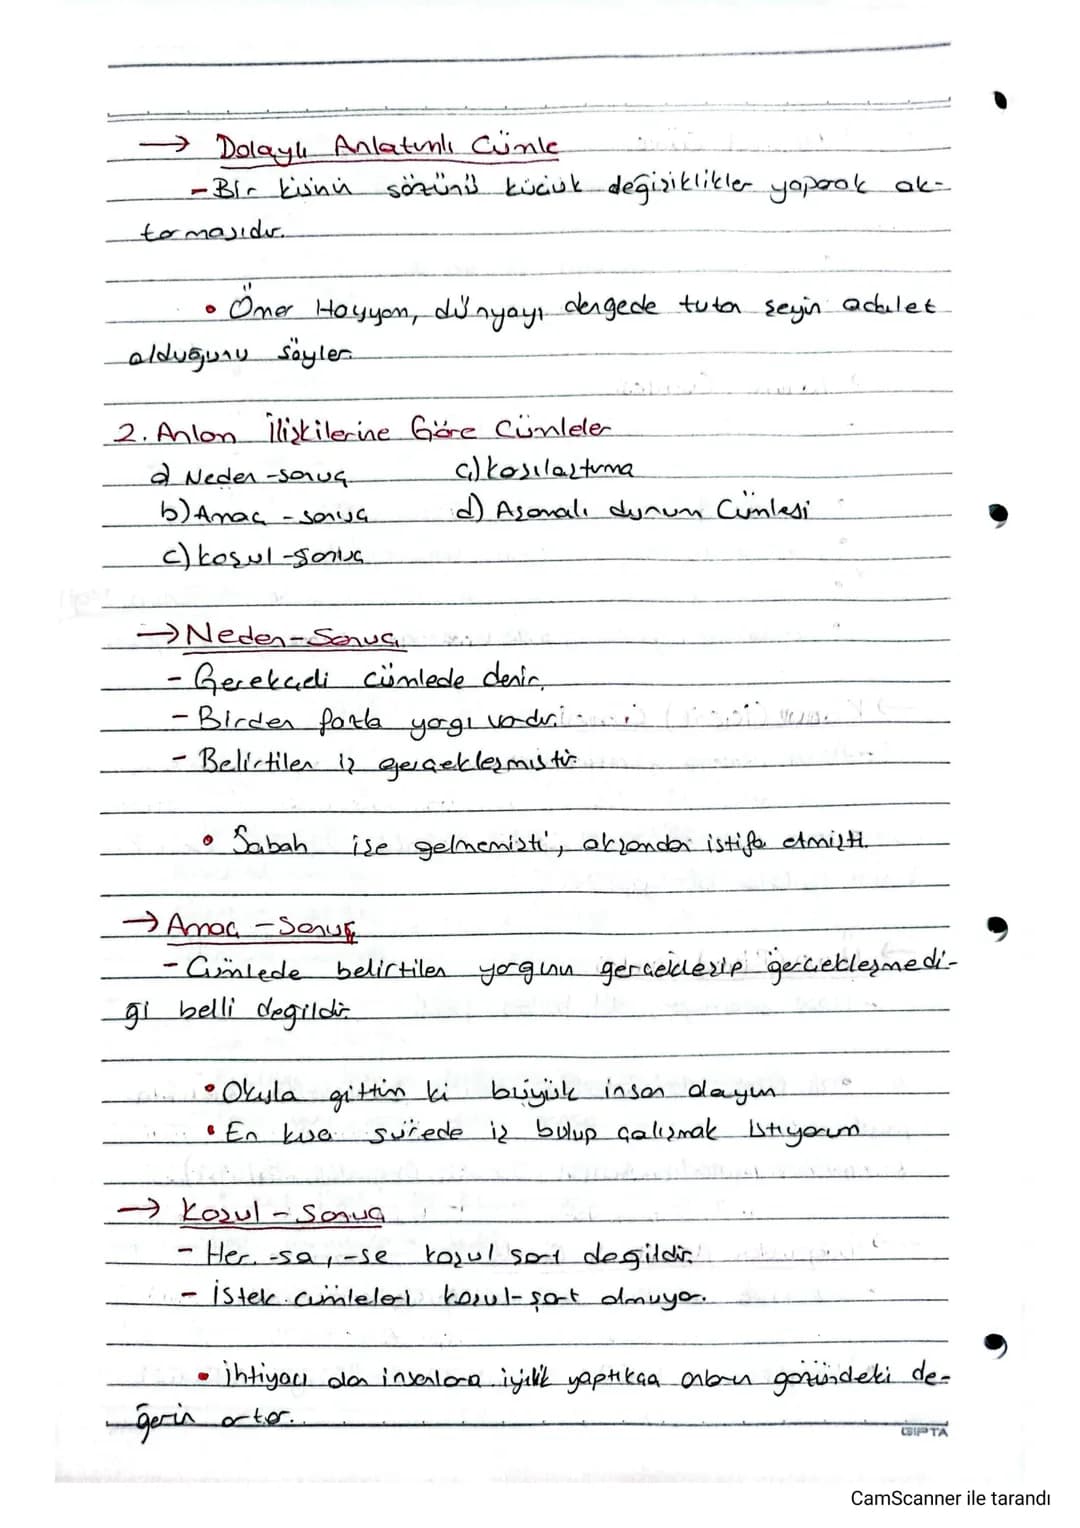 → Dolaylı Anlatımlı Cümle
- Bir kişinin sözünü küçük değişiklikler yaparak ak-
tarmasıdır.
• Ömer Hayyam, dünyayı dengede tutan şeyin adalet
olduğunu söyler.
2. Anlam İlişkilerine Göre Cümleler
a) Neden-sonuç
ç) karşılaştırma
b) Amaç - sonuç
d) Aşamalı durum Cümlesi
c) koşul-sonuç
→ Neden-Sonuç
- Gerekçeli cümlede denir.
- Birden fazla yargı vardır.
- Belirtilen iş gerçekleşmiştir.
• Sabah işe gelmemişti, akşamdan istifa etmişti.
→ Amaç - Sonuç
- Cümlede belirtilen yargının gerçekleşip gerçekleşmedi-
ği belli değildir.
• Okula gittin ki büyük insan olayın
• En kısa sürede iş bulup çalışmak istiyorum
→ Koşul - Sonuç
- Her -sa, -se koşul şart değildir.
- İstek cümleleri koşul-şart olmuyor.
• İhtiyacı olan insanlara iyilik yaptıkça onların gözündeki de-
ğerin artar.
GIPTA
CamScanner ile tarandı